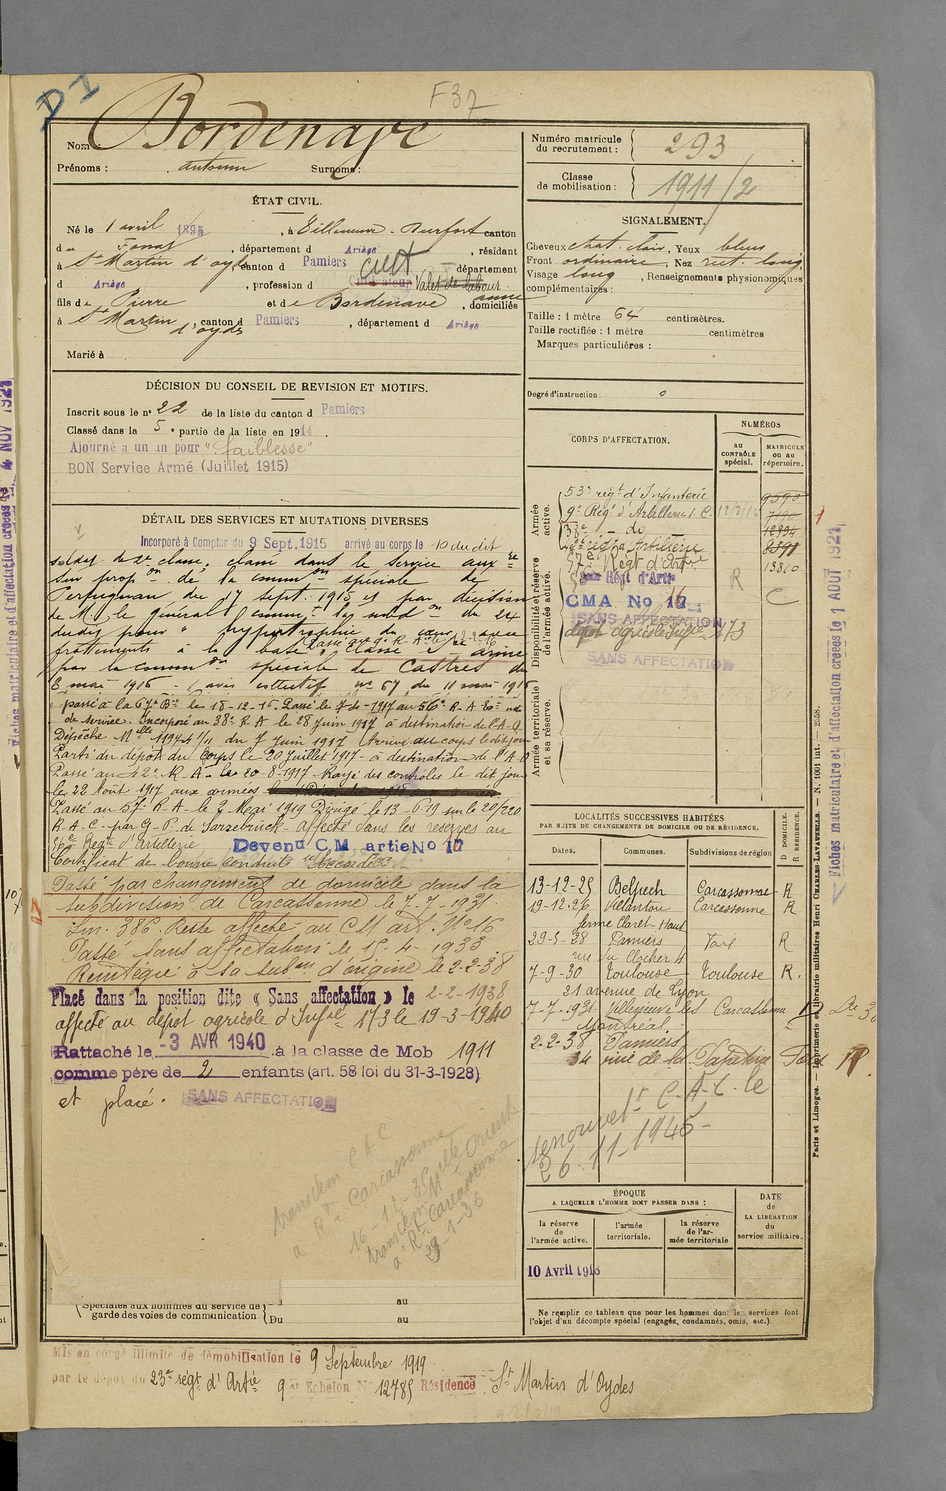 D I
F37
Nom Bordenave
Prénoms : antonin Surnoms :
Numéro matricule du recrutement : 293
Classe de mobilisation : 1911/2
ÉTAT CIVIL.
Né le 1 avril 1895, à Villeneuve-Durfort canton
du Fossat, département d Ariège, résidant
à St Martin d'oydes canton d Pamiers département
d Ariège, profession d cult Cultivateur Valet de labour
fils de Pierre et de Bordenave anne, domiciliés
à St Martin d'oydes, canton d Pamiers, département d Ariège
Marié à
SIGNALEMENT.
Cheveux chat. clair, Yeux bleus
Front ordinaire, Nez rect. long
Visage long, Renseignements physionomiques
complémentaires :
Taille : 1 mètre 64 centimètres.
Taille rectifiée : 1 mètre centimètres
Marques particulières :
Degré d'instruction :
DÉCISION DU CONSEIL DE REVISION ET MOTIFS.
Inscrit sous le n° 22 de la liste du canton d Pamiers
Classé dans la 5e partie de la liste en 1914.
Ajourné a un an pour "faiblesse"
BON Service Armé (Juillet 1915)
DÉTAIL DES SERVICES ET MUTATIONS DIVERSES
Incorporé à Compter du 9 Sept. 1915 arrivé au corps le 10 du dit
soldat de 2e classe, classé dans le service auxre
sur propon de la common spéciale de
Perpignan du 17 sept. 1915 et par décision
de M. le général commt la subdon du 24
dudit pour "hypertrophie du cœur avec
frottements à la base" classé sce armé
par la common spéciale de Castres du
8 mai 1916 avis collectif no 67 du 11 mai 1916
passé à la 67e Bie le 18-12-16. Passé le 7-4-1917 au 56e R.A.
de service. Incorporé au 38e R.A le 28 juin 1917 à destination de l'A.O
Dépêche Mlle 11944 1/11 du 7 Juin 1917 (Arrivé au corps le dit jour
Parti du dépôt du Corps le 20 Juillet 1917 à destination de l'A.O
Passé au 42e R.A. le 20-8-1917 Rayé des contrôles le dit jour
le 22 Août 1917 aux armées
Passé au 57e R.A. le 2 Mai 1919 Dirigé le 13-6-19 sur le 20/220
R.A.C. par G.P. de Sarrebruck - affecté dans les reserves au
57e Regt d'artillerie Devenu C.M artie No 17
Certificat de bonne conduite "accordé"
Passé par changement de domicile dans la
subdivision de Carcassonne le 7-7-1931.
Lm. 386. Reste affecté au CM art. No 16
Passé sans affectation le 15-4-1933
Réintégré à sa subon d'origine le 2-2-38
Placé dans la position dite « Sans affectation » le 2-2-1938
affecté au dépôt agricole d'Infie 173 le 19-3-1940
Rattaché le -3 AVR 1940 à la classe de Mob 1911
comme père de 2 enfants (art. 58 loi du 31-3-1928)
et placé. SANS AFFECTATION
transkem C A C
à Rt Carcassonne
16-12-35
transkem Mlle Orient
à Rt Carcassonne
29-1-36
Spéciales aux hommes du service de Du au
garde des voies de communication Du au
CORPS D'AFFECTATION.
NUMÉROS
au CONTRÔLE spécial.
MATRICULE ou au répertoire.
Armée active.
53e régt d'Infanterie 9590
9e Régt d'Artillerie C.
38e - do - 12394
57e Régt d'Artie 13810
Disponibilité et réserve de l'armée active.
Régt d'Artie
CMA No 17 16
R C
SANS AFFECTATION
dépôt agricole Infie 173
SANS AFFECTATION
Armée territoriale et sa réserve.
LOCALITÉS SUCCESSIVES HABITÉES
PAR SUITE DE CHANGEMENTS DE DOMICILE OU DE RÉSIDENCE.
Dates. Communes. Subdivisions de région D DOMICILE. R RÉSIDENCE.
13-12-25 Belpech Carcassonne R
19-12-26 Villautou Carcassonne R
ferme Claret-Haut
29-5-28 Pamiers Foix R
rue du Clocher 4
7-9-30 Toulouse Toulouse R.
21 avenue de Lyon
7-7-1931 Villeneuve les Carcassonne D
Montréal.
2-2-38 Pamiers
34 rue de la Foix
renouvelt C-A-C le
26-11-1945-
ÉPOQUE
A LAQUELLE L'HOMME DOIT PASSER DANS :
la réserve de l'armée active.
l'armée territoriale.
la réserve de l'armée territoriale
DATE DE LA LIBÉRATION du service militaire.
10 Avril 1918
Ne remplir ce tableau que pour les hommes dont les services font
l'objet d'un décompte spécial (engagés, condamnés, omis, etc.).
Mis en congé illimité de démobilisation le 9 Septembre 1919
par le dépôt du 23e régt d'Artie 9er Echelon No 12785 Résidence St Martin d'Oydes
Paris et Limoges. — Imprimerie et librairie militaires Henri CHARLES-LAVAUZELLE. — N. 1001 int. — 2558.
Fiches matriculaire et d'affectation creées le 1 AOUT 1927
Fiches matriculaire et d'affectation creees le 4 NOV 1921